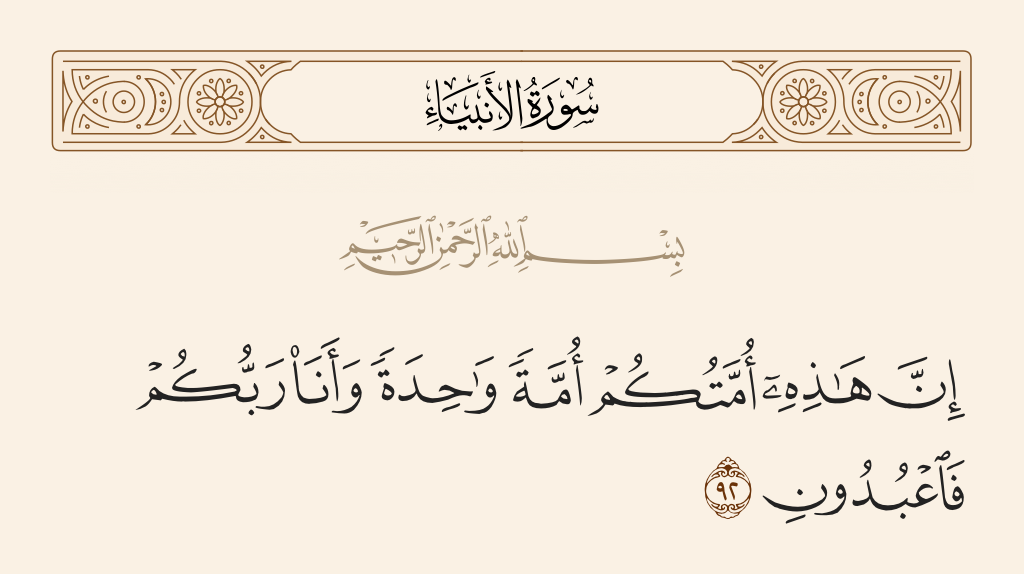 سُورَةُ الأَنبِيَاءِ
بِسْمِ ٱللَّهِ ٱلرَّحْمَٰنِ ٱلرَّحِيمِ
إِنَّ هَـٰذِهِۦٓ أُمَّتُكُمْ أُمَّةً وَٰحِدَةً وَأَنَا۠ رَبُّكُمْ
فَٱعْبُدُونِ ٩٢